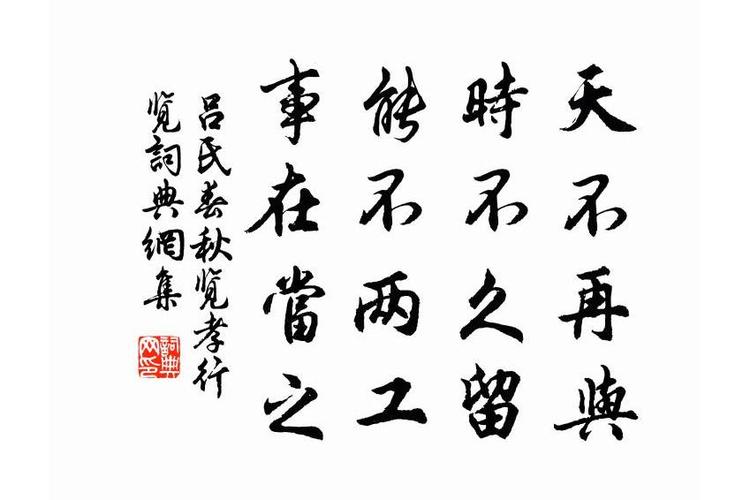 天不再與
時不久留
能不两工
事在當之
吕氏春秋览孝行
览詞典網集
詞典网印